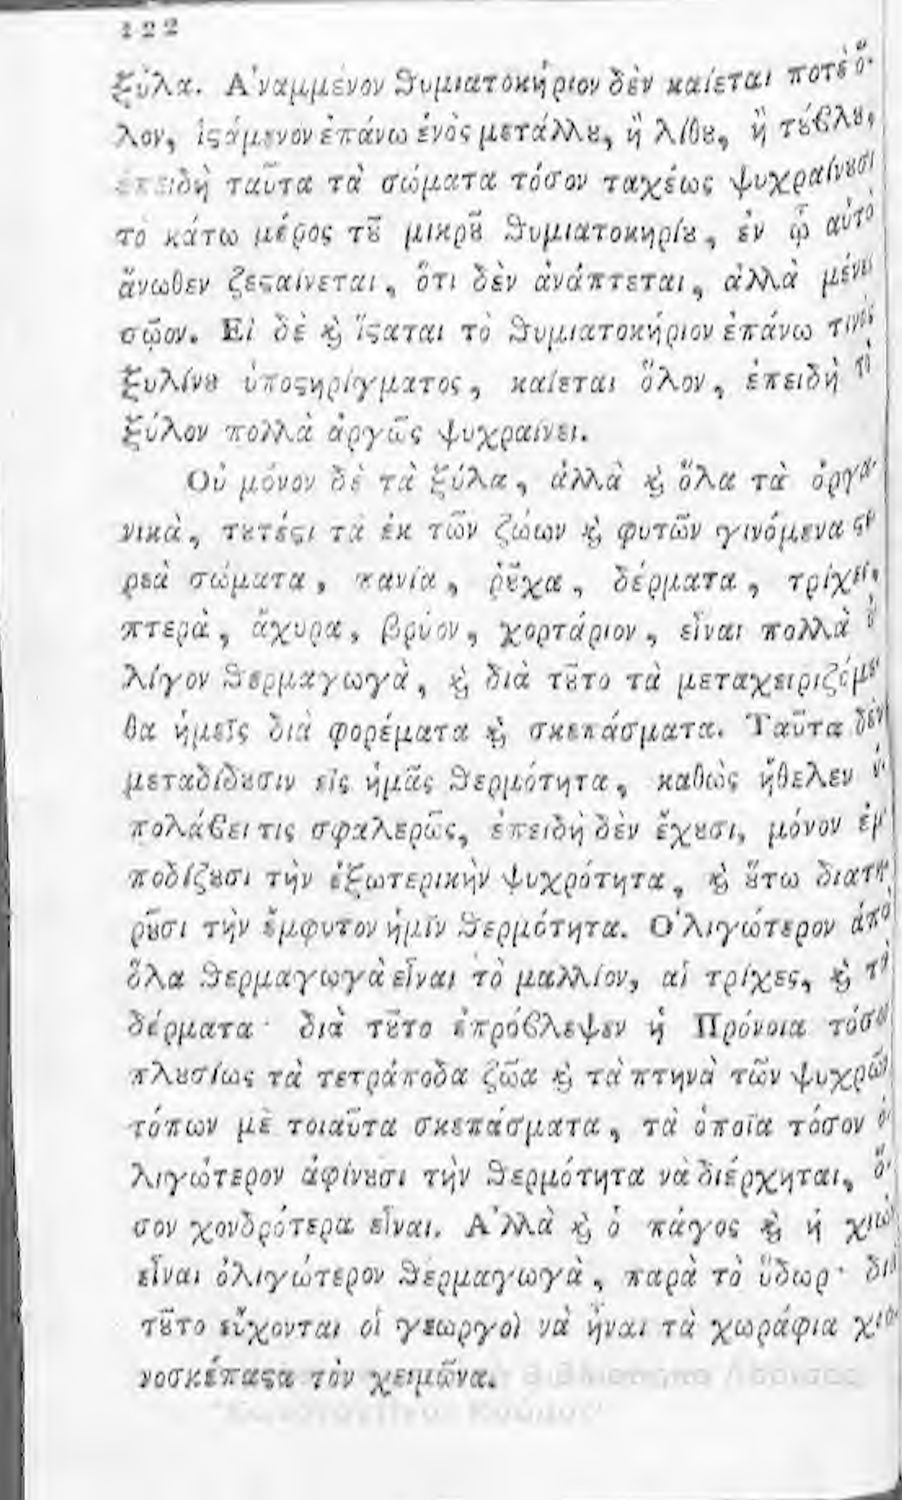 122
ξύλα. Ἀναμμένον ϑυμιατοκήριον δὲν καίεται ποτὲ ὅ-
λον, ἱϛάμενον ἐπάνω ἑνὸς μετάλλȣ, ἢ λίθȣ, ἢ τȣ́βλȣ,
ἐπειδὴ ταῦτα τὰ σώματα τόσον ταχέως ψυχραίνȣσι
τὸ κάτω μέρος τȣ͂ μικρȣ͂ ϑυμιατοκηρίȣ, ἐν ᾧ αὐτὸ
ἄνωθεν ζεϛαίνεται, ὅτι δὲν ἀνάπτεται, ἀλλὰ μένει
σῶον. Εἰ δὲ ϗ ἵϛαται τὸ ϑυμιατοκήριον ἐπάνω τινὸς
ξυλίνȣ ὑποϛηρίγματος, καίεται ὅλον, ἐπειδὴ τὸ
ξύλον πολλὰ ἀργῶς ψυχραίνει.
Οὐ μόνον δὲ τὰ ξύλα, ἀλλὰ ϗ ὅλα τὰ ὀργα-
νικὰ, τȣτέϛι τὰ ἐκ τῶν ζώων ϗ φυτῶν γινόμενα ϛε
ρεὰ σώματα, πανία, ῥȣ͂χα, δέρματα, τρίχες,
πτερὰ, ἄχυρα, βρύον, χορτάριον, εἶναι πολλὰ ὀ
λίγον ϑερμαγωγὰ, ϗ διὰ τȣ͂το τὰ μεταχειριζόμε-
θα ἡμεῖς διὰ φορέματα ϗ σκεπάσματα. Ταῦτα δὲν
μεταδίδȣσιν εἰς ἡμᾶς ϑερμότητα, καθὼς ἤθελεν ὑ-
πολάβει τις σφαλερῶς, ἐπειδὴ δὲν ἔχȣσι, μόνον ἐμ-
ποδίζȣσι τὴν ἐξωτερικὴν ψυχρότητα, ϗ ȣ͂̔τω διατη-
ρȣ͂σι τὴν ἔμφυτον ἡμῖν ϑερμότητα. Ὀλιγώτερον ἀπὸ
ὅλα ϑερμαγωγὰ εἶναι τὸ μαλλίον, αἱ τρίχες, ϗ τὰ
δέρματα· διὰ τȣ͂το ἐπρόβλεψεν ἡ Πρόνοια τόσον
πλȣσίως τὰ τετράποδα ζῶα ϗ τὰ πτηνὰ τῶν ψυχρῶν
τόπων μὲ τοιαῦτα σκεπάσματα, τὰ ὁποῖα τόσον ὀ-
λιγώτερον ἀφίνȣσι τὴν ϑερμότητα νὰ διέρχηται, ὅ-
σον χονδρότερα εἶναι. Ἀλλὰ ϗ ὁ πάγος ϗ ἡ χιὼν
εἶναι ὀλιγώτερον ϑερμαγωγὰ, παρὰ τὸ ὕδωρ· διὰ
τȣ͂το εὔχονται οἱ γεωργοὶ νὰ ἦναι τὰ χωράφια χιο-
νοσκέπαϛα τὸν χειμῶνα.